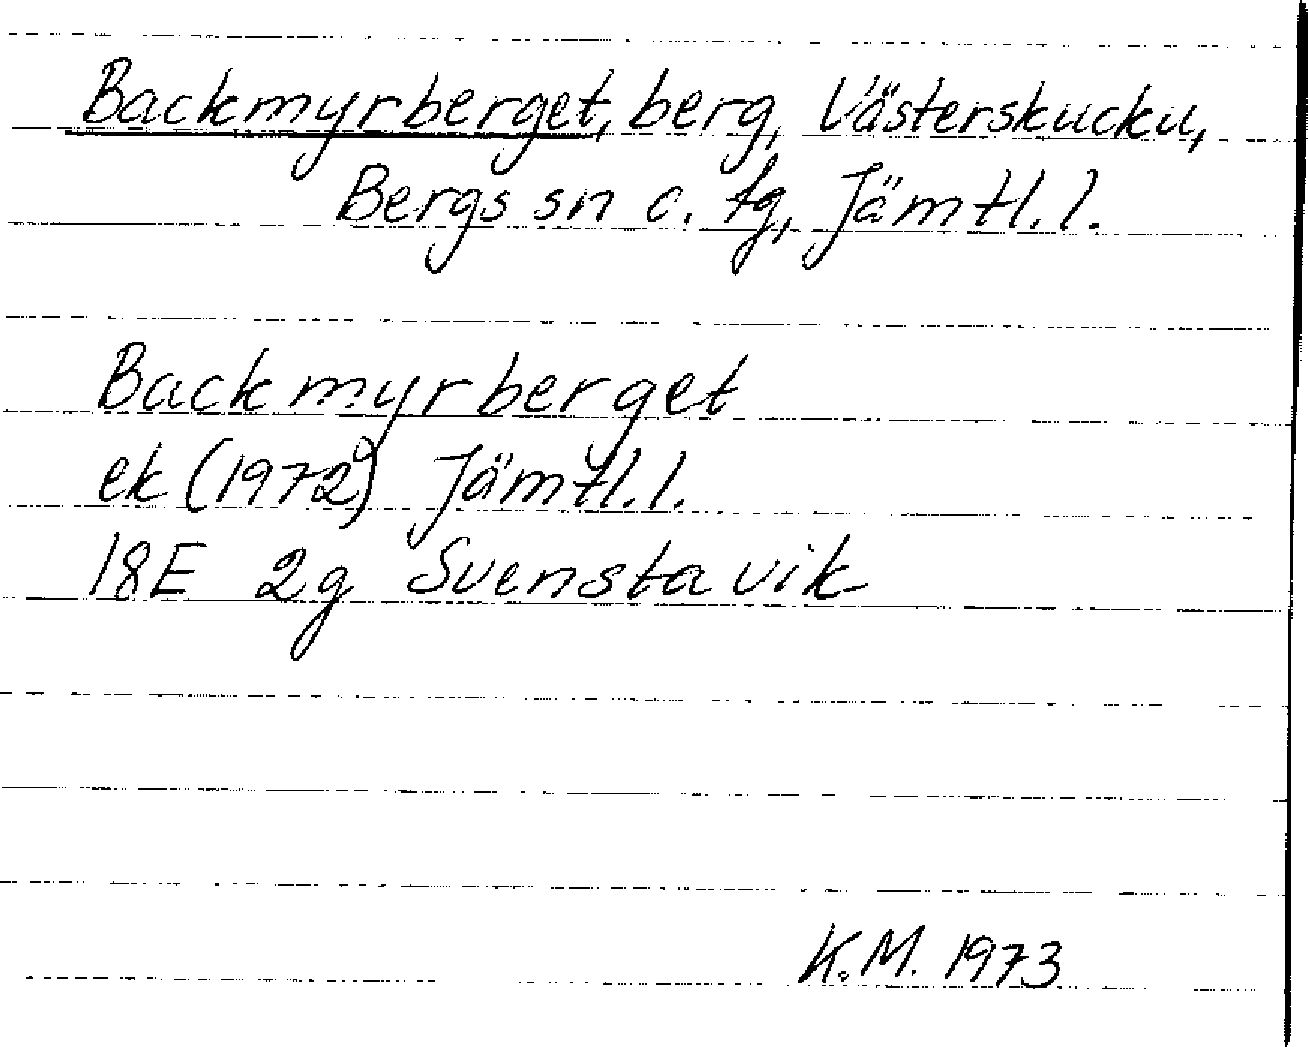 Backmyrberget, berg, Västerskucku,
Bergs sn o. tg, Jämtl. l.
Backmyrberget
ek (1972) Jämtl. l.
18E 2g Svenstavik
K.M. 1973